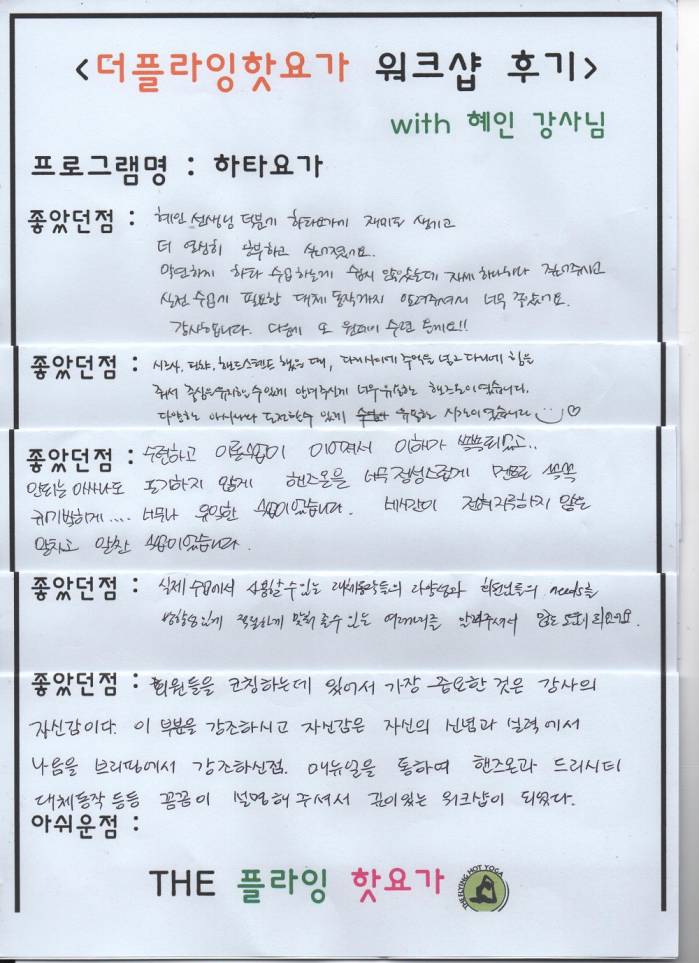 <더플라잉핫요가 워크샵 후기>
with 혜인 강사님
프로그램명 : 하타요가
좋았던점 : 혜인 선생님 덕분에 하타요가에 재미도 생기고
더 열심히 공부하고 싶어졌어요.
막연하게 하타 수업하는게 쉽지 않았는데 자세 하나하나 짚어주시고
실전 수업에 필요한 대체 동작까지 알려주셔서 너무 좋았어요.
감사합니다. 다음에 또 원데이 수련 올게요!!
좋았던점 : 시르사, 핸드스탠드 했을 때, 다리사이에 주먹을 넣고 다리에 힘을
줘서 중심을 유지할 수 있게 안내주신게 너무 유익한 핸즈온이었습니다.
다양한 아사나 도전할 수 있게 유익한 시간이었습니다
좋았던점 : 수련하고 이론수업이 이어져서 이해가 쏙쏙되었고..
안되는 아사나도 포기하지 않게 핸즈온을 너무 정성스럽게 멘트로 쏙쏙
귀기박히게.... 너무나 유익한 수업이었습니다. 네시간이 전혀 지루하지 않은
알차고 알찬 수업이었습니다.
좋았던점 : 실제 수업에서 사용할 수 있는 대체동작들의 다양성과 회원님들의 needs를
방향성있게 적절하게 맞춰 줄 수 있는 알려주셔서 많은 도움이 되었어요.
좋았던점 : 회원들을 코칭하는데 있어서 가장 중요한 것은 강사의
자신감이다. 이 부분을 강조하시고 자신감은 자신의 신념과 실력에서
나옴을 브리핑에서 강조하신점. 매뉴얼을 통하여 핸즈온과 드리시티
대체동작 등등 꼼꼼이 설명해 주셔서 깊이있는 워크샵이 되었다.
아쉬운점 :
THE 플라잉 핫요가
THE FLYING HOT YOGA